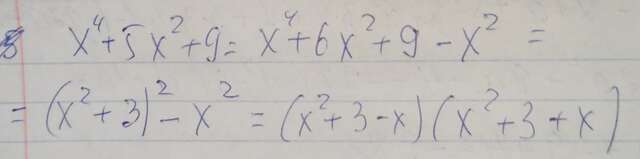 x⁴+5x²+9 = x⁴+6x²+9 - x² =
= (x²+3)² - x² = (x²+3-x)(x²+3+x)